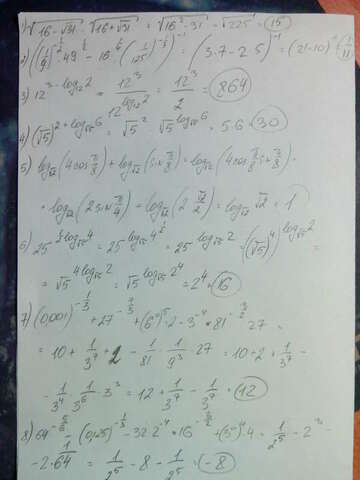 1) √(16 - √31) · √(16 + √31) = √(16² - 31) = √225 = 15
2) ((1/9)^(-1/2) · 49^(1/2) - 16^(1/4) · (1/125)^(-1/3))^(-1) = (3·7 - 2·5)^(-1) = (21 - 10)^(-1) = 1/11
3) 12^(3 - log₁₂2) = 12³/12^(log₁₂2) = 12³/2 = 864
4) (√5)^(2 + log_√5 6) = √5² · √5^(log_√5 6) = 5·6 = 30
5) log_√2 (4cos π/8) + log_√2 (sin π/8) = log_√2 (4cos π/8 sin π/8) =
= log_√2 (2 sin π/4) = log_√2 (2 √2/2) = log_√2 √2 = 1
6) 25^(1/2 log_√5 4) = 25^(log_√5 4^(1/2)) = 25^(log_√5 2) = (√5)^(4 log_√5 2) =
= √5^(4 log_√5 2) = √5^(log_√5 2⁴) = 2⁴ = 16
= 10 + 1/3⁷ + 2 - 1/81 · 1/9³ · 27 = 10 + 2 + 1/3⁷ -
- 1/3⁴ · 1/3⁶ · 3³ = 12 + 1/3⁷ - 1/3⁷ = 12
- 2 · 64 = 1/2⁵ - 8 - 1/2⁵ = -8